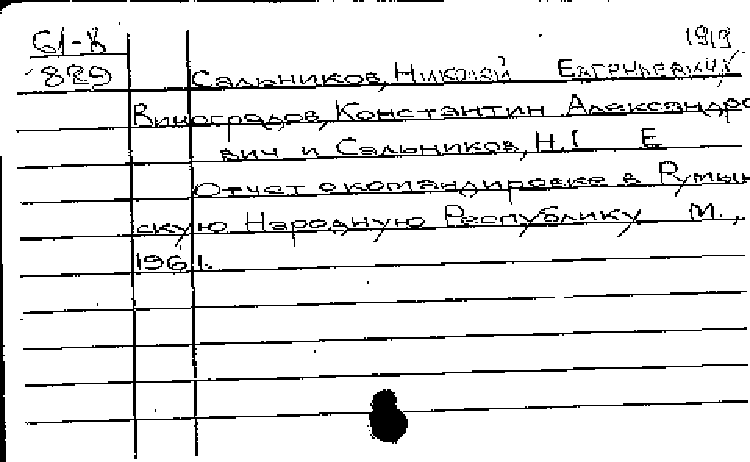 61-8 1919
829 Сальников, Николай Евгеньевич
Виноградов, Константин Александро
вич и Сальников, Н. Е
Отчет о командировке в Румын
скую Народную Республику М.,
1961.